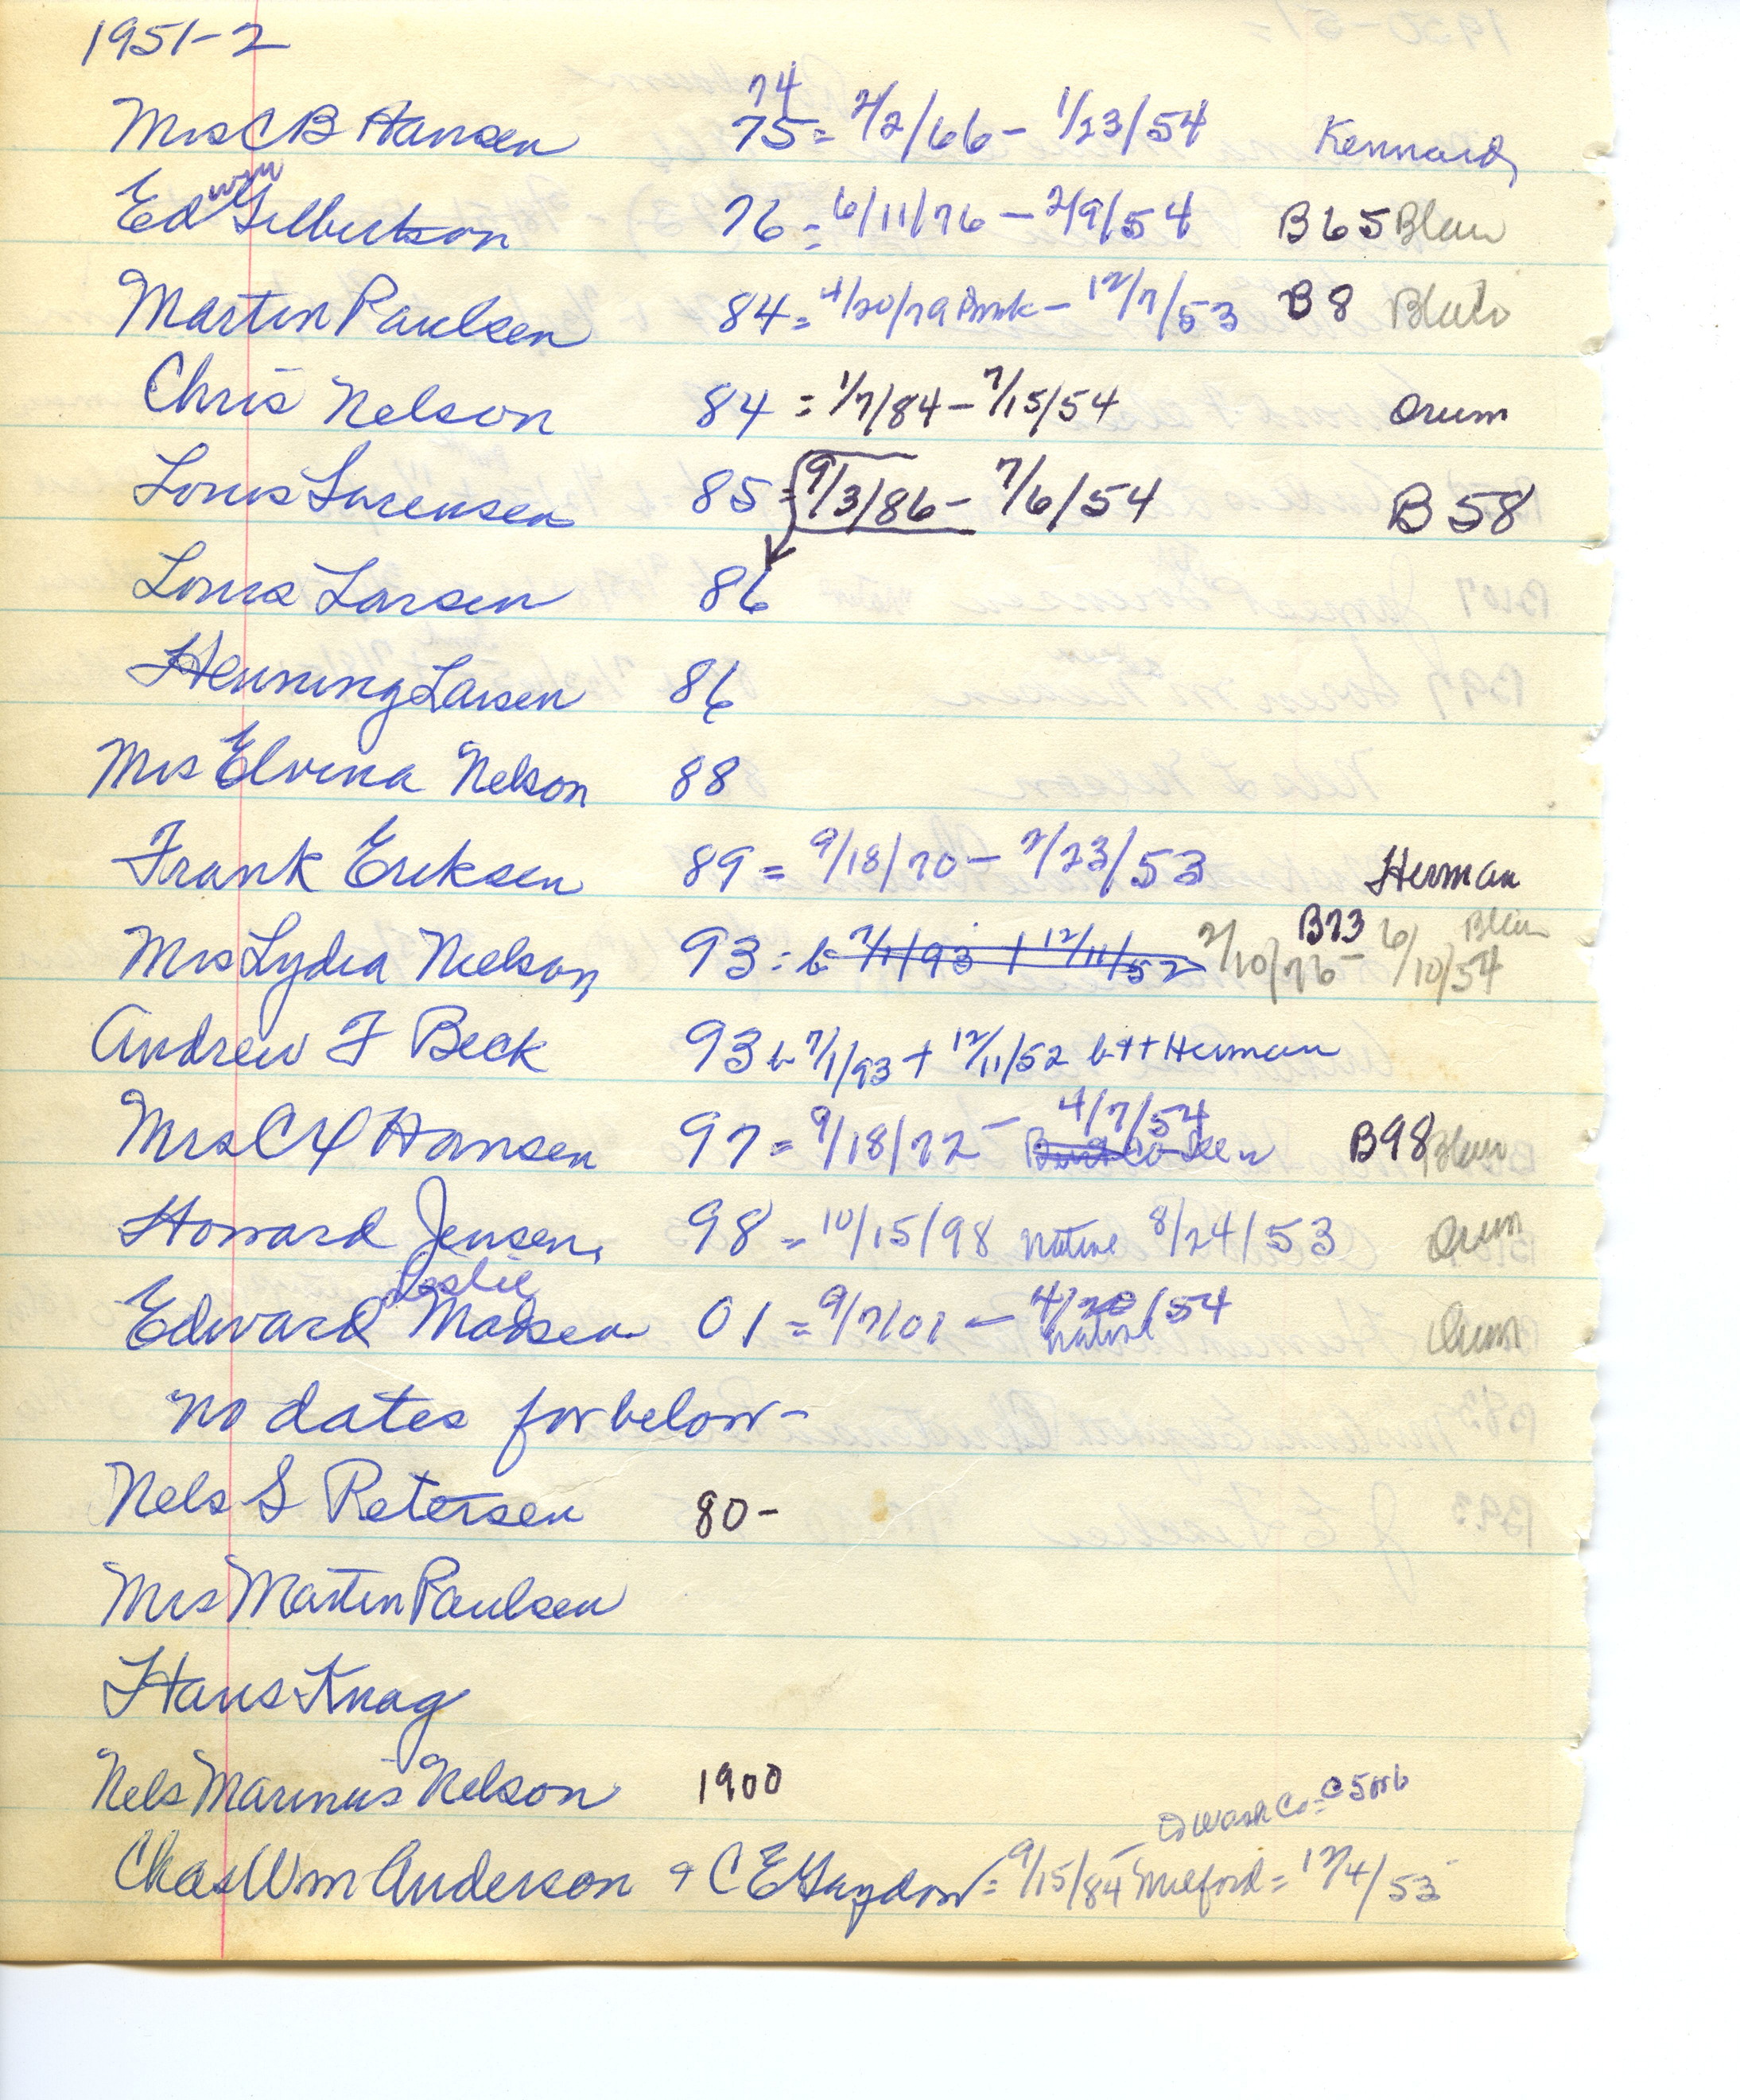 1951-2
74
Mrs C B Hansen 75 = 2/2/66 - 1/23/54 Kennard
Ed Wm Gilbertson 76 = 6/11/76 - 2/9/54 B65 Blair
Martin Paulsen 84 = 4/20/79 - 12/7/53 B8
Chris Nelson 84 = 1/7/84 - 7/15/54 Orum
Louis Sorensen 85 = 9/3/86 - 7/6/54 B58
Louis Larsen 86
Henning Larsen 86
Mrs Elvina Nelson 88
Frank Eriksen 89 = 9/18/70 - 7/23/53 Herman
B73 Blair
Mrs Lydia Nielson 93 = b 7/1/93 + 12/11/52 2/10/76 - 6/10/54
Andrew F Beck 93 b 7/1/93 + 12/11/52 b++ Herman
4/7/54
Mrs C Hansen 97 = 9/18/72 - B98 Blair
Howard Jensen 98 = 10/15/98 native 8/24/53 Orum
Leslie
Edward Madsen 01 = 9/7/01 - 4/20/54 Orum
native
No dates for below -
Nels S Petersen 80 -
Mrs Martin Paulsen
Hans Knag
Nels Marinus Nelson 1900
Wash Co = C 5 or 6
Chas Wm Anderson + C E = 9/15/84 - Milford = 12/4/53